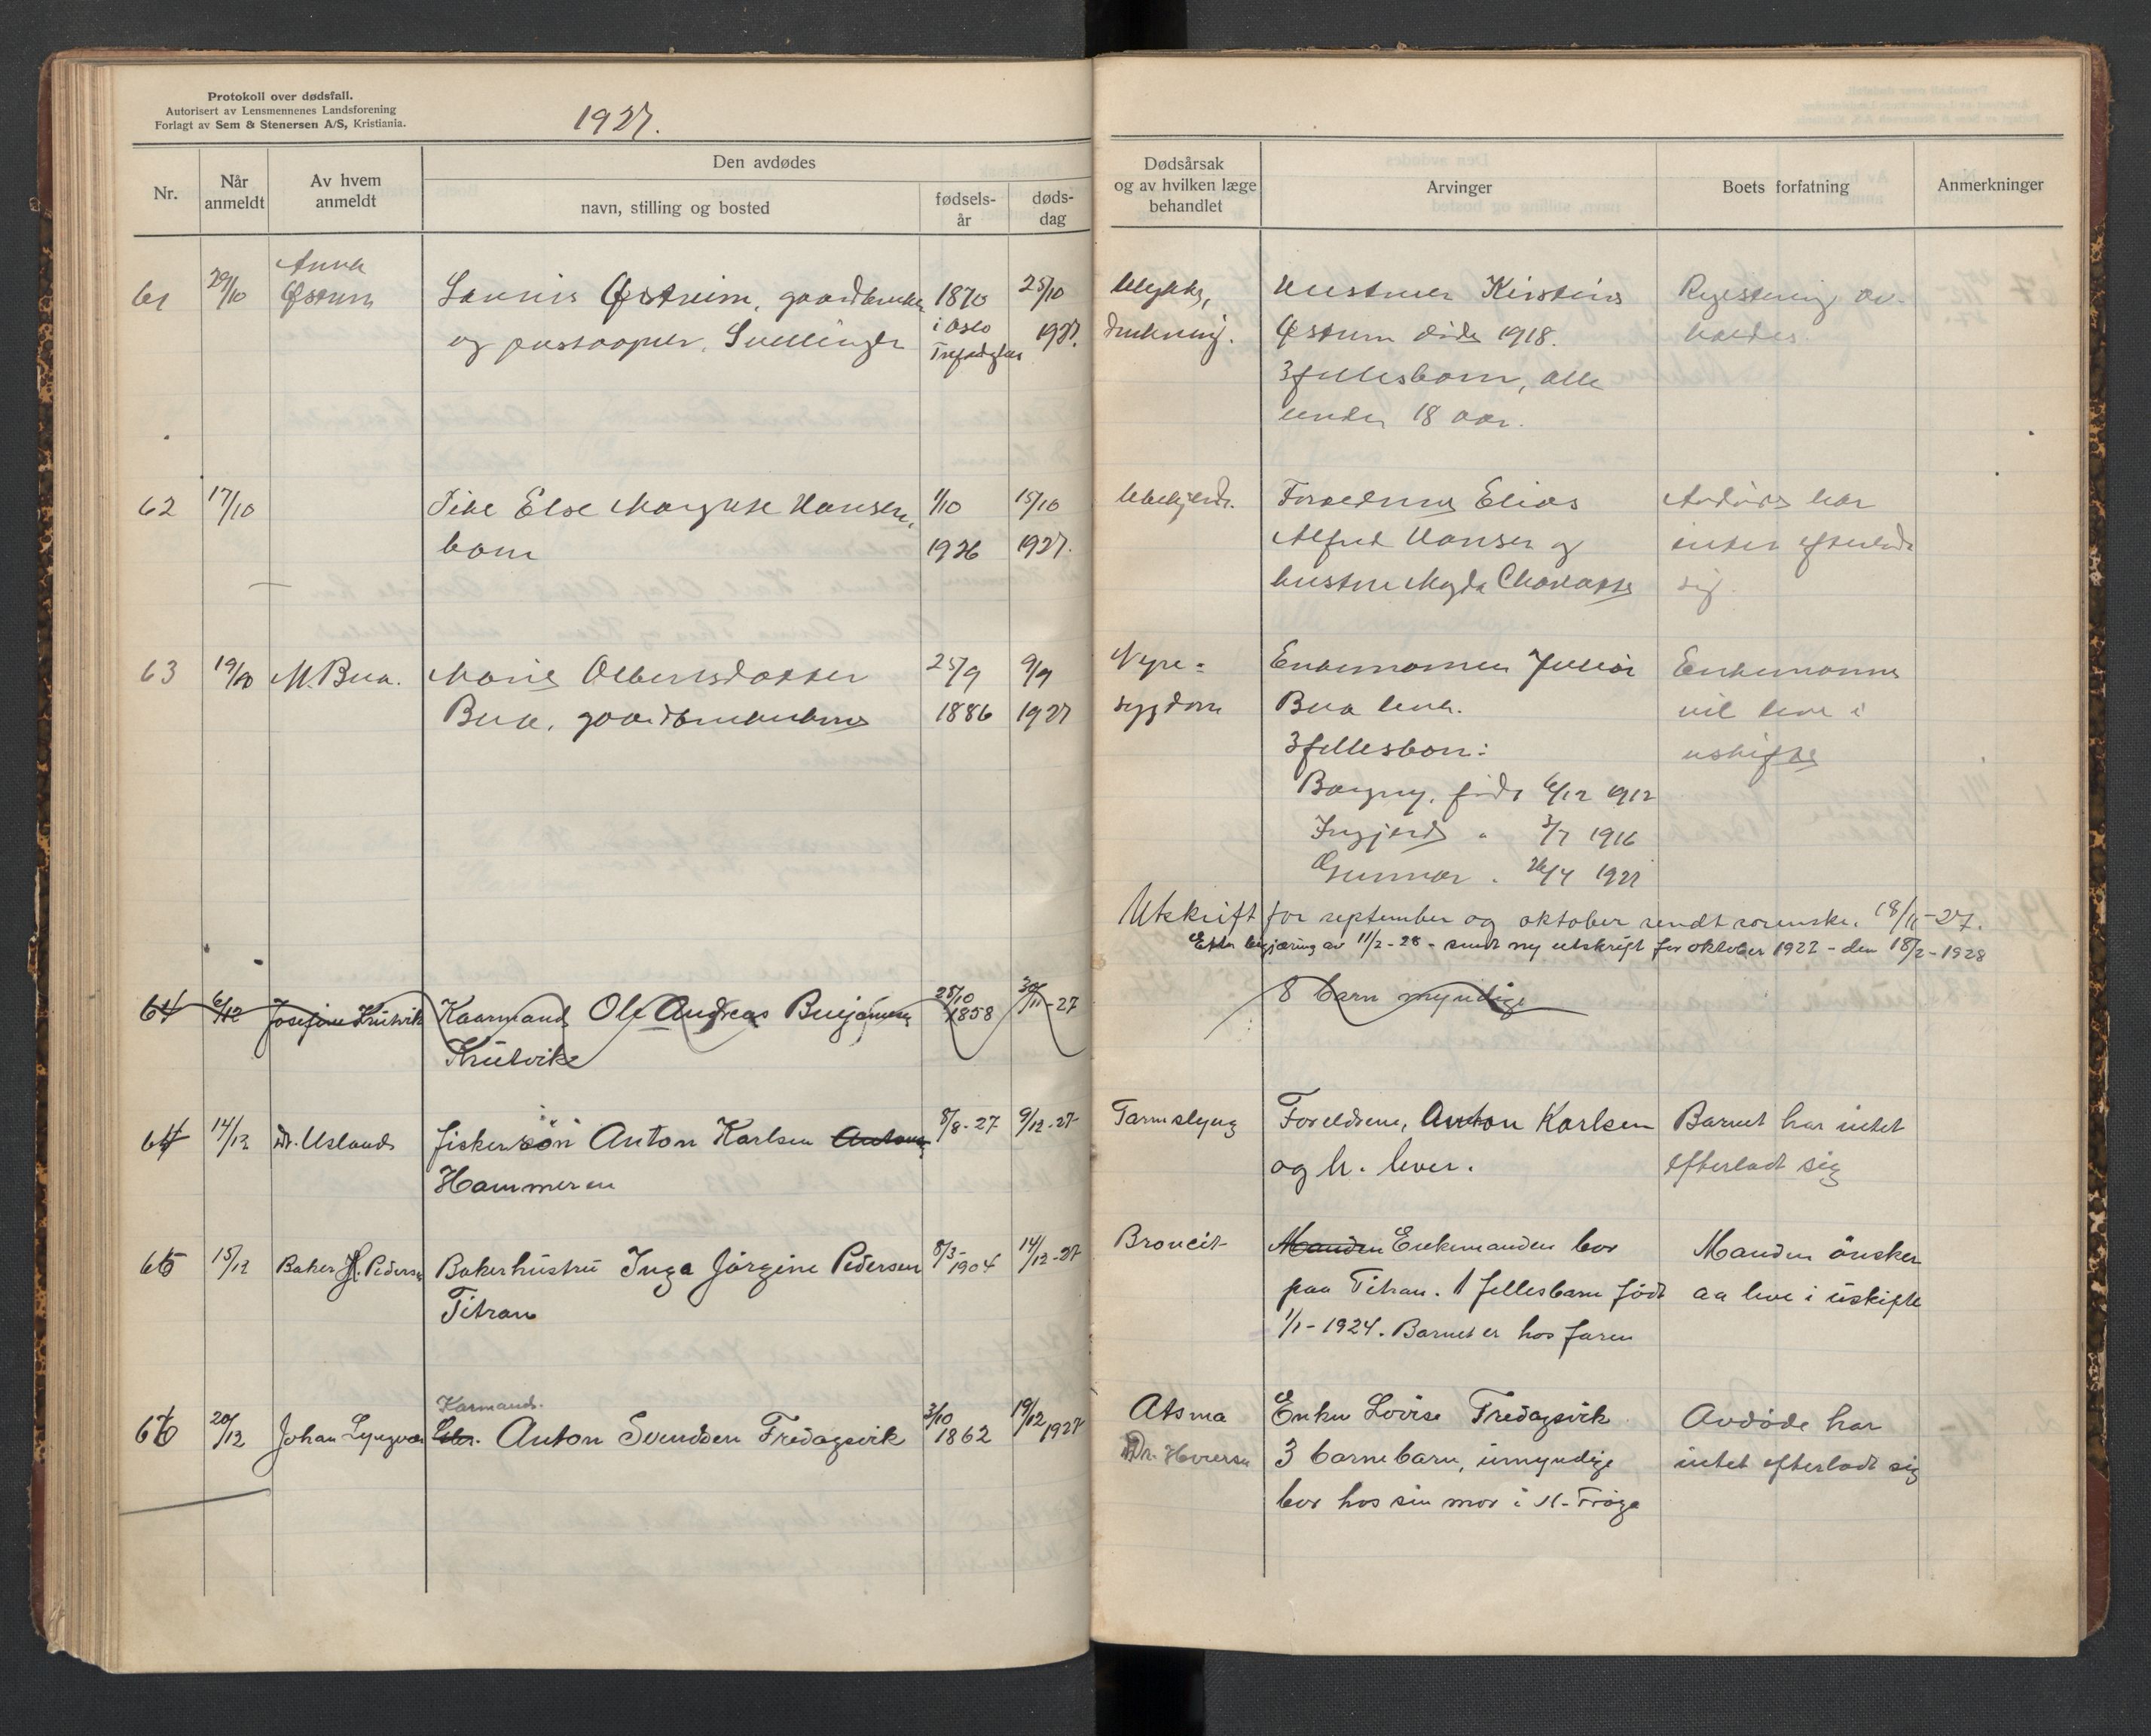 Protokoll over dødsfall.
Autorisert av Lensmennenes Landsforening
Forlagt av Sem & Stenersen A/S, Kristiania.
1927.
Nr.
Når anmeldt
Av hvem anmeldt
Den avdødes
navn, stilling og bosted
fødselsår
dødsdag
Dødsårsak
og av hvilken læge
behandlet
Arvinger
Boets forfatning
Anmerkninger
61 29/10 Anna Østrem
Østreim, gaardbruker
og
1870
i Oslo
25/10
1927.
Ulykke,
drukning.
Hustruen Kirstine
Østrem døde 1918.
3 fellesbarn, alle
under 18 aar.
Registrering av-
holdes.
62 17/10
Pike Else Margrete Hansen,
barn
1/10
1926
15/10
1927.
Ubekjendt.
Foreldrene Elias
Alfred Hansen og
hustru Magda
Avdøde har
intet efterladt
sig.
63 19/10 M. Bua.
Marie Olbertsdatter
Bua, gaardbrukerhustru
25/9
1886
9/9
1927
Nyre-
sygdom
Enkemannen Julius
Bua lever.
3 fellesbarn:
Borgny, født 6/12 1912
Ingjerd " 3/7 1916
Gunnar " 26/4 1921
Enkemannen
vil leve i
uskifte
Utskrift for september og oktober sendt sorenskr. 18/11-27.
Etter begjæring av 11/2-28 - sendt ny utskrift for oktober 1927 - den 18/2-1928
64 6/12 Josefine Krutvik
Kaarmand Ole Andreas Benjaminsen
Krutvik
25/10
1858
30/11-27
8 barn myndige
64 14/12 Dr. Usland
fiskersøn Anton Karlsen
Hammeren
8/8-27
9/12-27
Tarmslyng
Foreldrene, Anton Karlsen
og h. lever.
Barnet har intet
efterladt sig
65 15/12 Baker H. Pedersen
Bakerhustru Inga Jørgine Pedersen
Titran
8/3-
1904
14/12-27
Broncit
Manden Enkemanden bor
paa Titran. 1 fellesbarn født
1/1-1924. Barnet er hos faren
Manden ønsker
aa leve i uskifte
66 20/12 Johan Lyngvær
Karmand.
Anton Svendsen Fredagsvik
3/10
1862
19/12
1927
Atsma
Enken Lovise Fredagsvik
3 barnebarn, umyndige
bor hos sin mor i N-Frøya
Avdøde har
intet efterladt sig